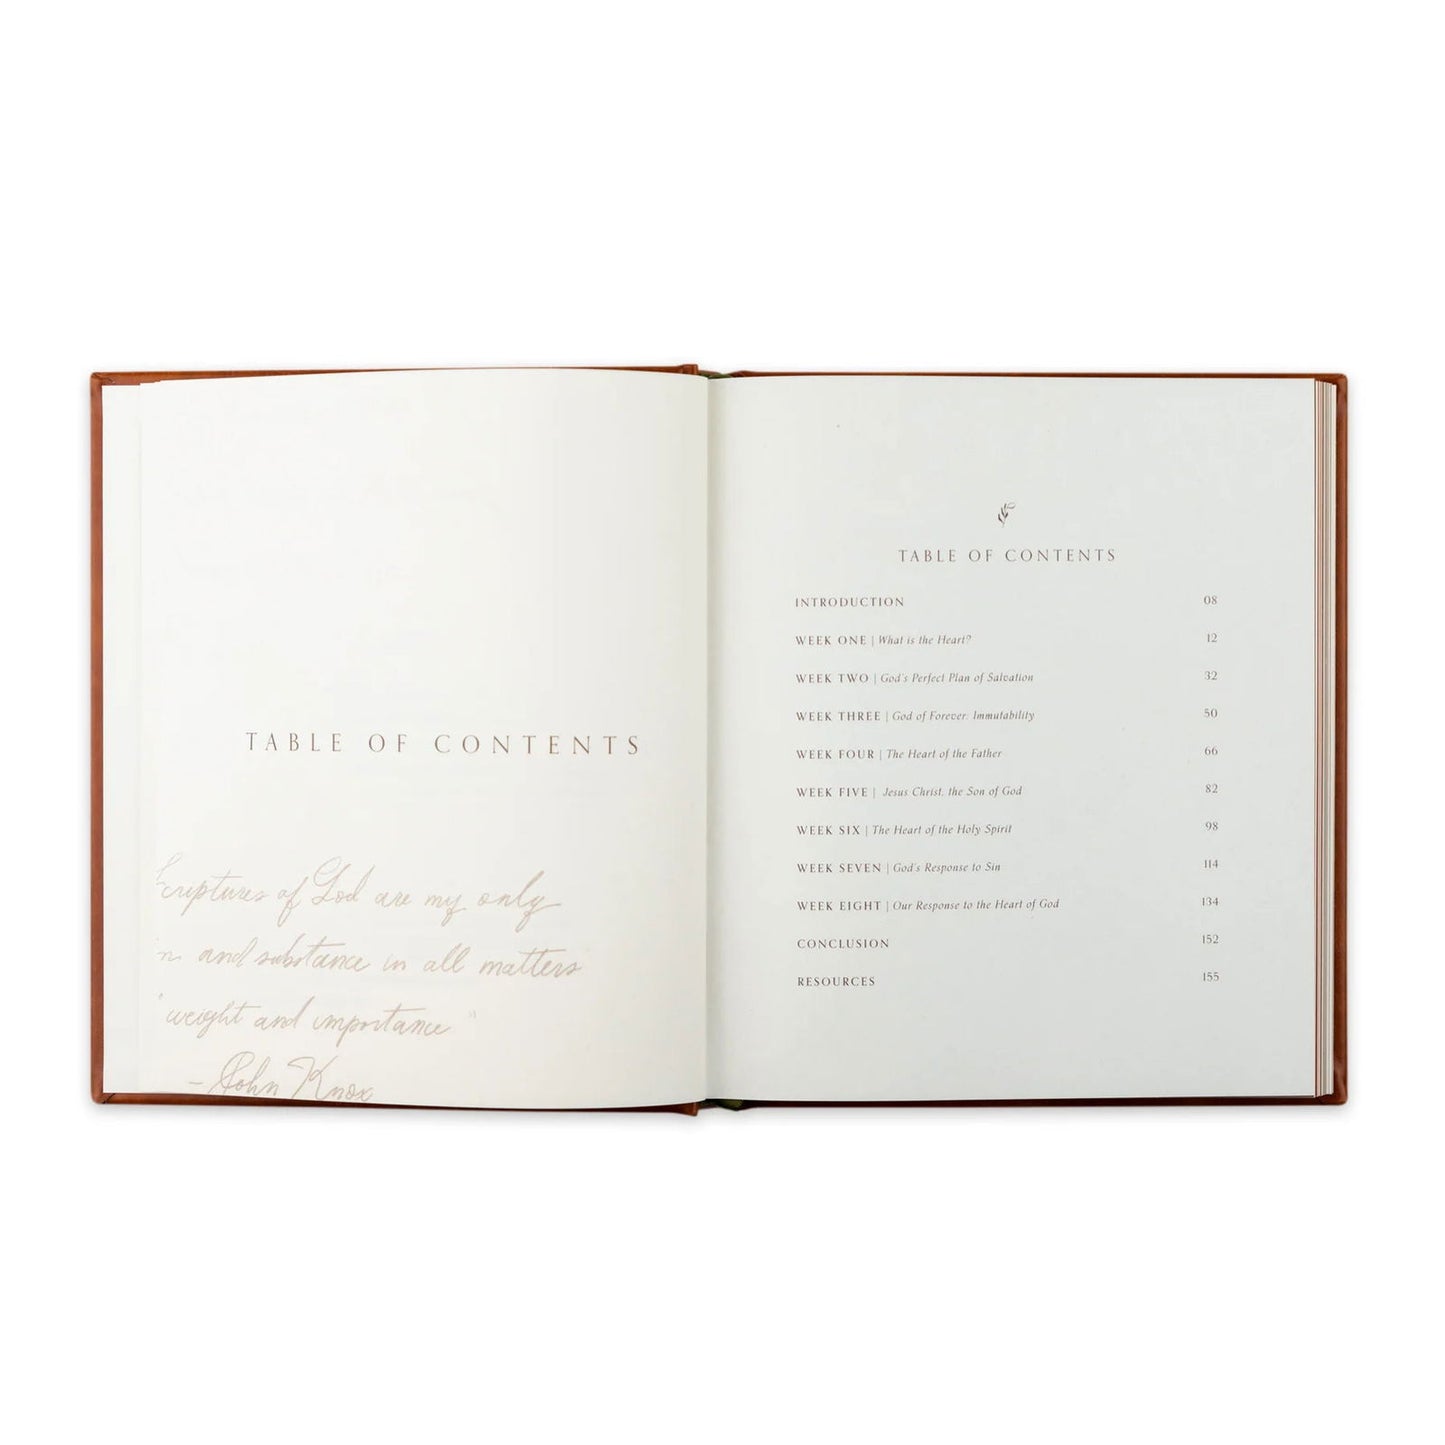 TABLE OF CONTENTS
criptures of God are my only
and substance in all matters
weight and importance"
- John Knox
TABLE OF CONTENTS
INTRODUCTION 08
WEEK ONE | What is the Heart? 12
WEEK TWO | God's Perfect Plan of Salvation 32
WEEK THREE | God of Forever: Immutability 50
WEEK FOUR | The Heart of the Father 66
WEEK FIVE | Jesus Christ, the Son of God 82
WEEK SIX | The Heart of the Holy Spirit 98
WEEK SEVEN | God's Response to Sin 114
WEEK EIGHT | Our Response to the Heart of God 134
CONCLUSION 152
RESOURCES 155